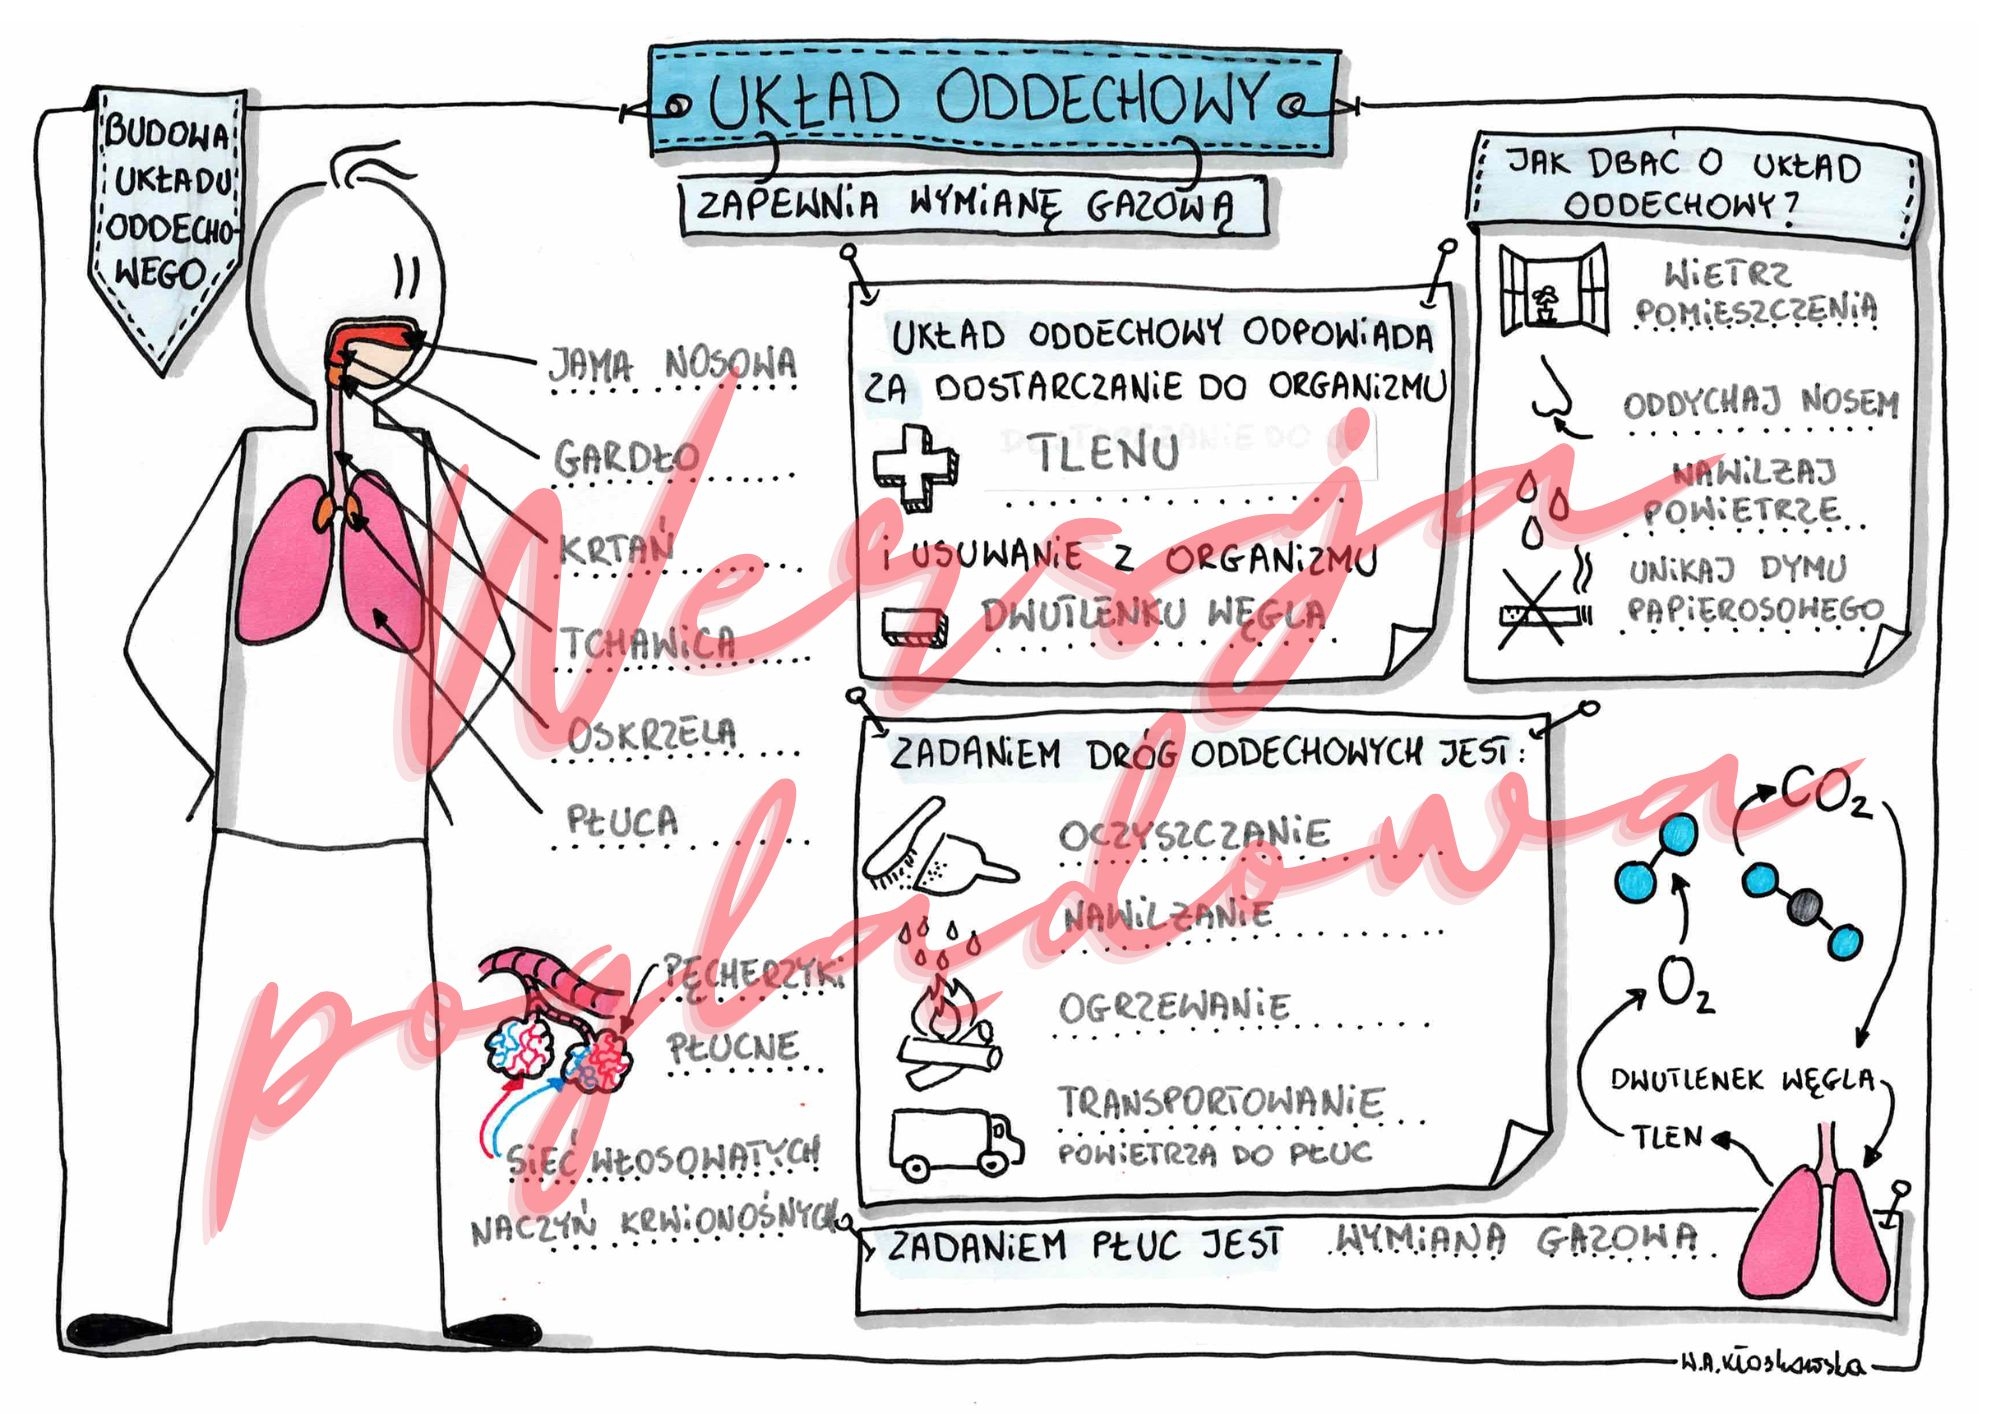 UKŁAD ODDECHOWY
ZAPEWNIA WYMIANĘ GAZOWĄ
BUDOWA
UKŁADU
ODDECHO-
WEGO
JAMA NOSOWA
GARDŁO
KRTAŃ
TCHAWICA
OSKRZELA
PŁUCA
PĘCHERZYKI
PŁUCNE
SIEĆ WŁOSOWATYCH
NACZYŃ KRWIONOŚNYCH
UKŁAD ODDECHOWY ODPOWIADA
ZA DOSTARCZANIE DO ORGANIZMU
TLENU
I USUWANIE Z ORGANIZMU
DWUTLENKU WĘGLA
ZADANIEM DRÓG ODDECHOWYCH JEST:
OCZYSZCZANIE
NAWILŻANIE
OGRZEWANIE
TRANSPORTOWANIE
POWIETRZA DO PŁUC
ZADANIEM PŁUC JEST WYMIANA GAZOWA
JAK DBAĆ O UKŁAD
ODDECHOWY?
WIETRZ
POMIESZCZENIA
ODDYCHAJ NOSEM
NAWILŻAJ
POWIETRZE
UNIKAJ DYMU
PAPIEROSOWEGO
CO2
O2
DWUTLENEK WĘGLA
TLEN
W.A.Kłoskowska
Wersja
poglądowa